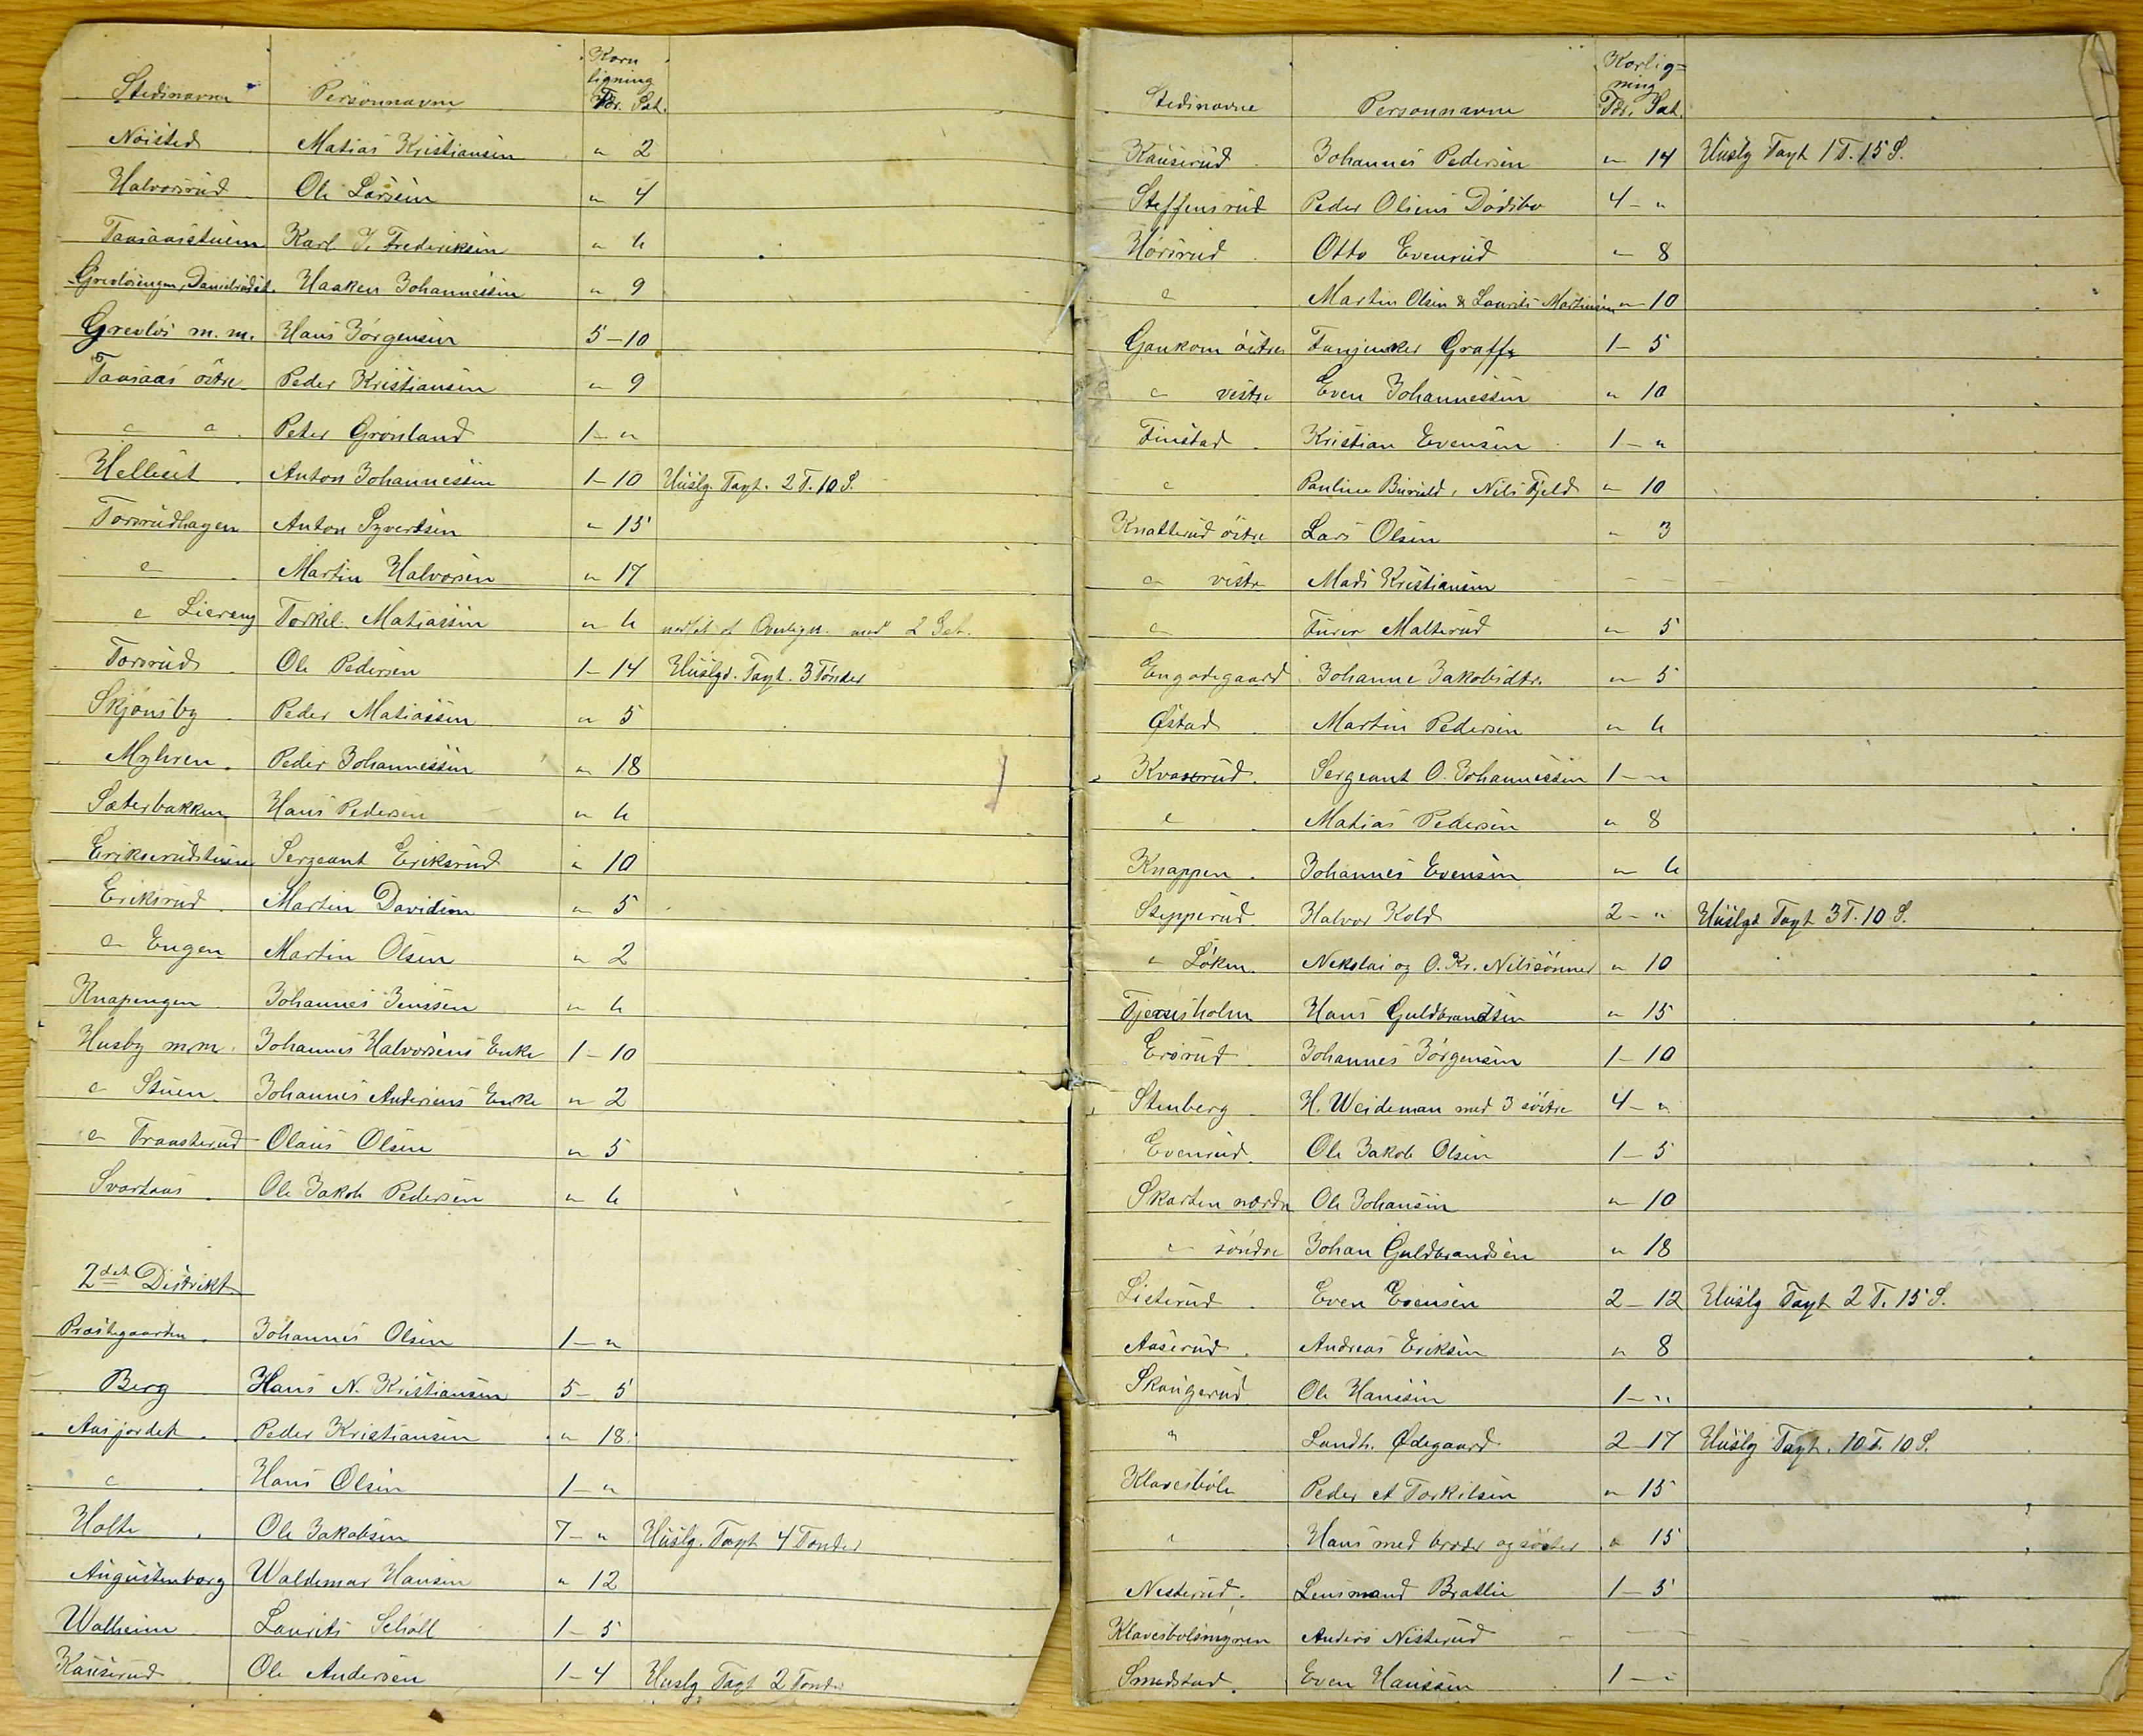 Stedsnavne Personnavne Korn ligning Tdr. Sæt.
Nøisted Matias Kristiansen " 2
Halvorsrud Ole Larsen " 4
Taasaasstuen Karl J. Frederiksen " 6
Grevløsengen, Haaken Johannessen " 9
Grevløs m.m. Hans Jørgensen 5 – 10
Taasaas østre Peder Kristiansen " 9
" " Peter Grønland 1 – "
Helleset Anton Johannessen 1 – 10 Huslg. Taxt. 2 T. 10 S.
Torsrudhagen Anton Syvertsen " 15
" Martin Halvorsen " 17
" Liereng Torkil Matiassen " 6 med 2 Set.
Torsrud Ole Pedersen 1 – 14 Huslgd. Taxt. 3 Tønder
Skjønsby Peder Matiassen " 5
Myhren Peder Johannessen " 18
Sæterbakken Hans Pedersen " 6
Erikserudstuen Sergeant Eriksrud " 10
Eriksrud Martin Davidsen " 5
" Engen Martin Olsen " 2
Knapengen Johannes Jenssen " 6
Husby m.m. Johannes Halvorsens Enke 1 – 10
" Stuen Johannes Andersens Enke " 2
" Traasterud Olaus Olsen " 5
Svartaas Ole Jakob Pedersen " 6
2det Distrikt
Præstegaarden Johannes Olsen 1 – "
Berg Hans N. Kristiansen 5 – 5
Aasjordet Peder Kristiansen " 18
" Hans Olsen 1 – "
Holte Ole Jakobsen 7 – " Huslg. Taxt 4 Tønder
Augustenborg Waldemar Hansen " 12
Walheim Laurits Scholl 1 – 5
Kauserud Ole Andersen 1 – 4 Huslg Taxt 2 Tønder
Stedsnavne Personnavne Korlig= ning Tdr. Sæt.
Kauserud Johannes Pedersen " 14 Huslg Taxt 1 T. 15 S.
Steffensrud Peder Olsens Dødsbo 4 – "
Horsrud Otto Evenrud " 8
" Martin Olsen & Laurits Martinsen " 10
Gaukom østre Fanjunker Graff 1 – 5
" vestre Even Johannessen " 10
Finstad Kristian Evensen 1 – "
" Pauline Nils Fjeld " 10
Knatterud østre Lars Olsen " 3
" vestre Mads Kristiansen – – –
" Furer Malterud " 5
Engodegaard Johanne Jakobsdtr. " 5
Østad Martin Pedersen " 6
Kvaserud Sergeant O. Johannessen 1 – "
" Matias Pedersen " 8
Knappen Johannes Evensen " 6
Stepperud Halvor Kold 2 – " Huslgd Taxt 3 T. 10 S.
" Løken Nekolai og O. Kr. Nilssønner " 10
Tjernsholm Hans Guldbrandsen " 15
Ersrud Johannes Jørgensen 1 – 10
Stenberg H. Weideman med 3 søstre 4 – "
Evenrud Ole Jakob Olsen 1 – 5
Skarten nordre Ole Johansen " 10
" søndre Johan Guldbrandsen " 18
Listerud Even Evensen 2 – 12 Huslg Taxt 2 T. 15 S.
Aaserud Andreas Eriksen " 8
Skaugerud Ole Hanssen 1 – "
" Landh. Ødegaard 2 – 17 Huslg Taxt. 10 T. 10 S.
Klavesbøle Peder et Torkilsen " 15
" Hans med broder og søster " 15
Nesterud Lensmand Bratlie 1 – 5
Klavesbolsmyren Anders Nesterud – – –
Smedstad Even Hanssen 1 – "